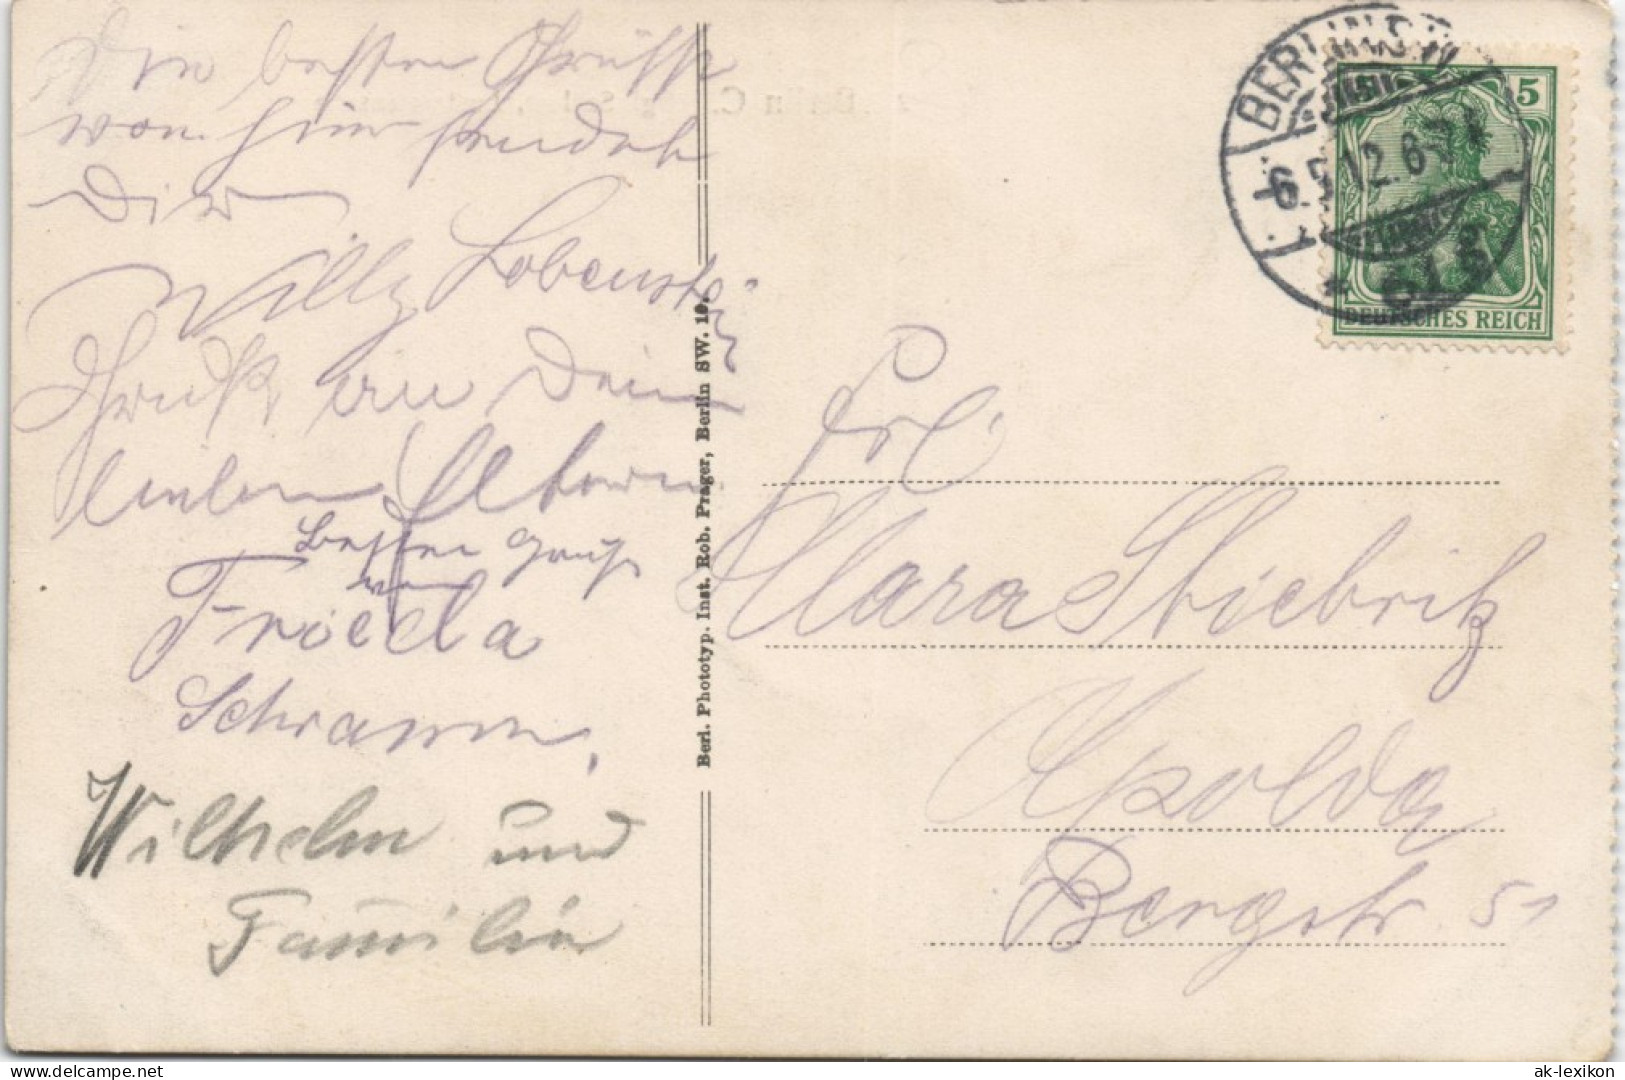 Die besten Grüsse
von hier sendet
Dir
Willy Lobenst
Gruß an Deine
lieben Eltern
Besten Gruß
von
Frieda
Schramm.
Wilhelm und
Familie
Berl. Phototyp. Inst. Rob. Prager, Berlin SW. 19.
BERLIN
6.5.12.6
5
DEUTSCHES REICH
Frl.
Clara Stiebritz
Apolda
Bergstr. 51
akpool.de
ak-lexikon